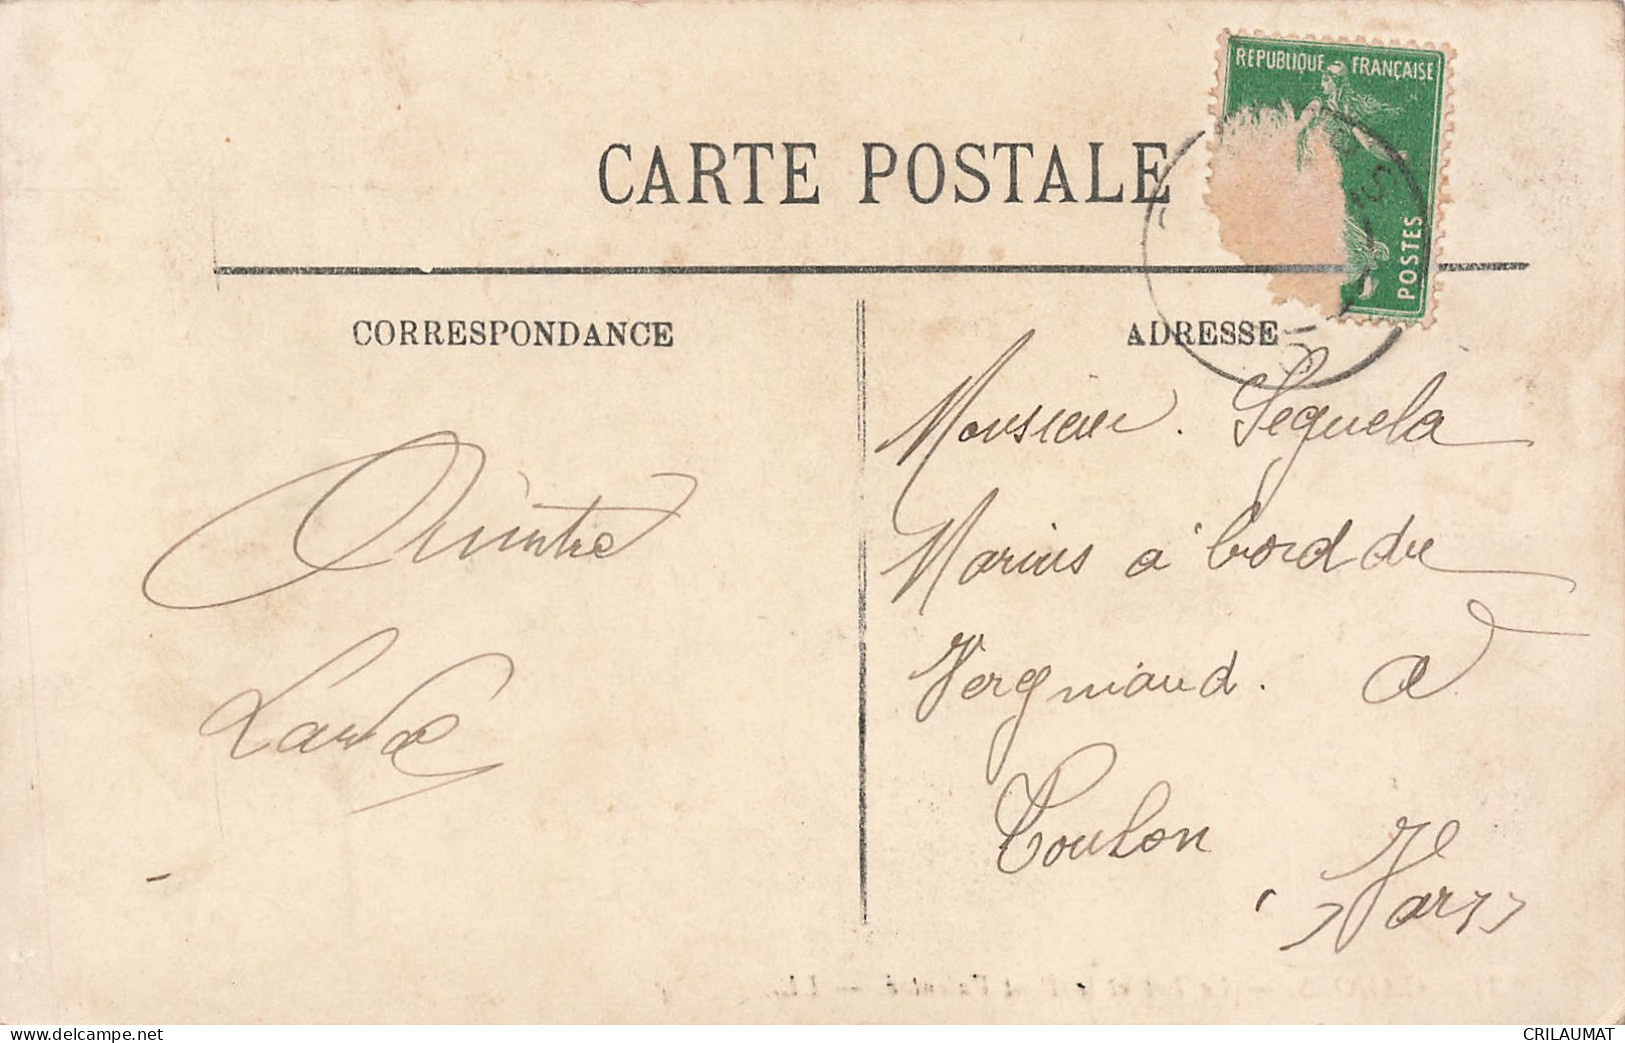 REPUBLIQUE FRANÇAISE
POSTES
CARTE POSTALE
CORRESPONDANCE
ADRESSE
Monsieur. Séquela
Marius à bord du
Vergniaud. A
Toulon
"Var"
Quintré
CRILAUMAT